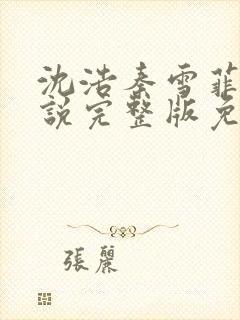 沈浩秦雪菲
說完整版免
張麗